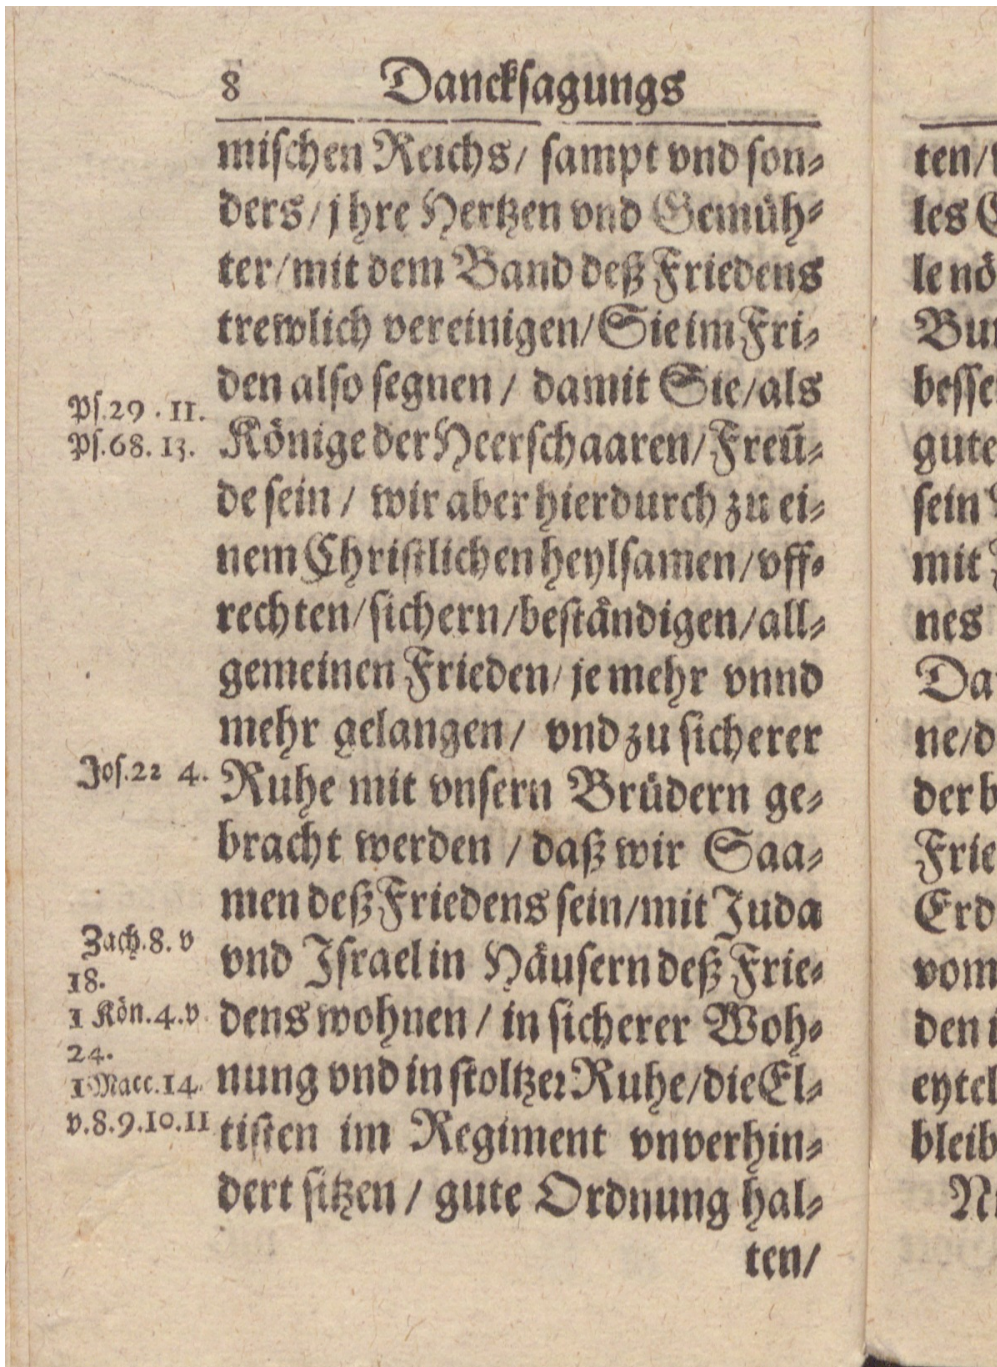 8 Danckſagungs
miſchen Reichs/ ſampt vnd ſon⸗
ders/jhre Hertzen vnd Gemüh⸗
ter/mit dem Band deß Friedens
trewlich vereinigen/Sie im Fri⸗
den alſo ſegnen / damit Sie/als
Pſ.29.11.
Pſ.68.13.
Könige der Heerſchaaren/Freū⸗
de ſein / wir aber hierdurch zu ei⸗
nem Chriſtlichen heylſamen/vff⸗
rechten/ſichern/beſtändigen/all⸗
gemeinen Frieden/je mehr vnnd
mehr gelangen/ vnd zu ſicherer
Joſ.22 4.
Ruhe mit vnſern Brüdern ge⸗
bracht werden / daß wir Saa⸗
men deß Friedens ſein/mit Juda
Zach.8. v
18.
vnd Iſrael in Häuſern deß Frie⸗
1 Kön.4.v
24.
dens wohnen / in ſicherer Woh⸗
1 Macc.14.
v.8.9.10.11
nung vnd in ſtoltzer Ruhe/die El⸗
tiſten im Regiment vnverhin⸗
dert ſitzen / gute Ordnung hal⸗
ten/
ten/
les
le nö
Bu
beſſe
gute
ſein
mit
nes
Da
ne/d
der b
Frie
Erd
vom
den i
eytel
bleib
N